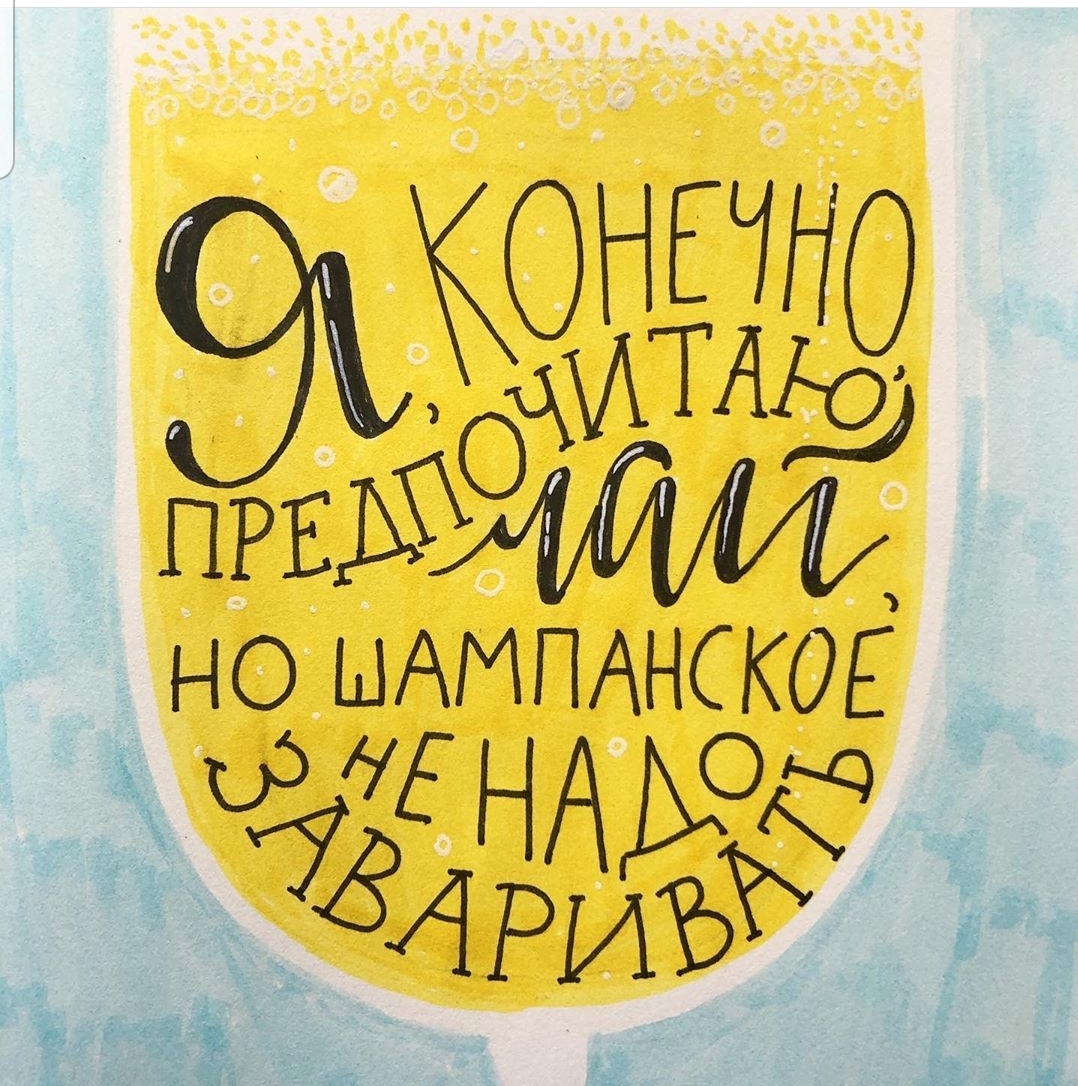 Я, КОНЕЧНО
ПРЕДПОЧИТАЮ,
чай,
НО ШАМПАНСКОЕ
НЕ НАДО
ЗАВАРИВАТЬ